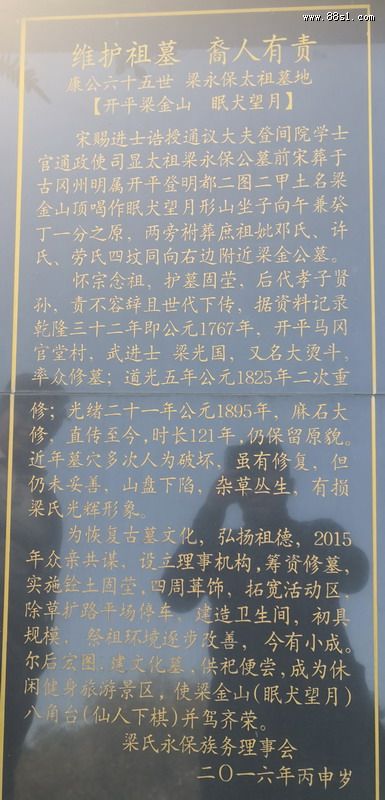 www.88s1.com
维护祖墓 裔人有责
康公六十五世 梁永保太祖墓地
【开平梁金山 眠犬望月】
宋赐进士诰授通议大夫登间院学士
官通政使司显太祖梁永保公墓前宋葬于
古冈州明属开平登明都二图二甲土名梁
金山顶唱作眠犬望月形山坐子向午兼癸
丁一分之原，两旁祔葬庶祖妣邓氏、许
氏、劳氏四坟同向右边附近梁金公墓。
怀宗念祖，护墓固茔，后代孝子贤
孙，责不容辞且世代下传，据资料记录
乾隆三十二年即公元1767年，开平马冈
官堂村，武进士 梁光国，又名大烫斗，
率众修墓；道光五年公元1825年二次重
修；光绪二十一年公元1895年，麻石大
修，直传至今，时长121年，仍保留原貌。
近年墓穴多次人为破坏，虽有修复，但
仍未妥善，山盘下陷，杂草丛生，有损
梁氏光辉形象。
为恢复古墓文化，弘扬祖德，2015
年众亲共谋，设立理事机构，筹资修墓，
实施土固茔，四周茸饰，拓宽活动区，
除草扩路平场停车，建造卫生间，初具
规模，祭祖环境逐步改善，今有小成。
尔后宏图，建文化墓，供祀便尝，成为休
闲健身旅游景区，使梁金山(眠犬望月)
八角台(仙人下棋)并驾齐荣。
梁氏永保族务理事会
二〇一六年丙申岁